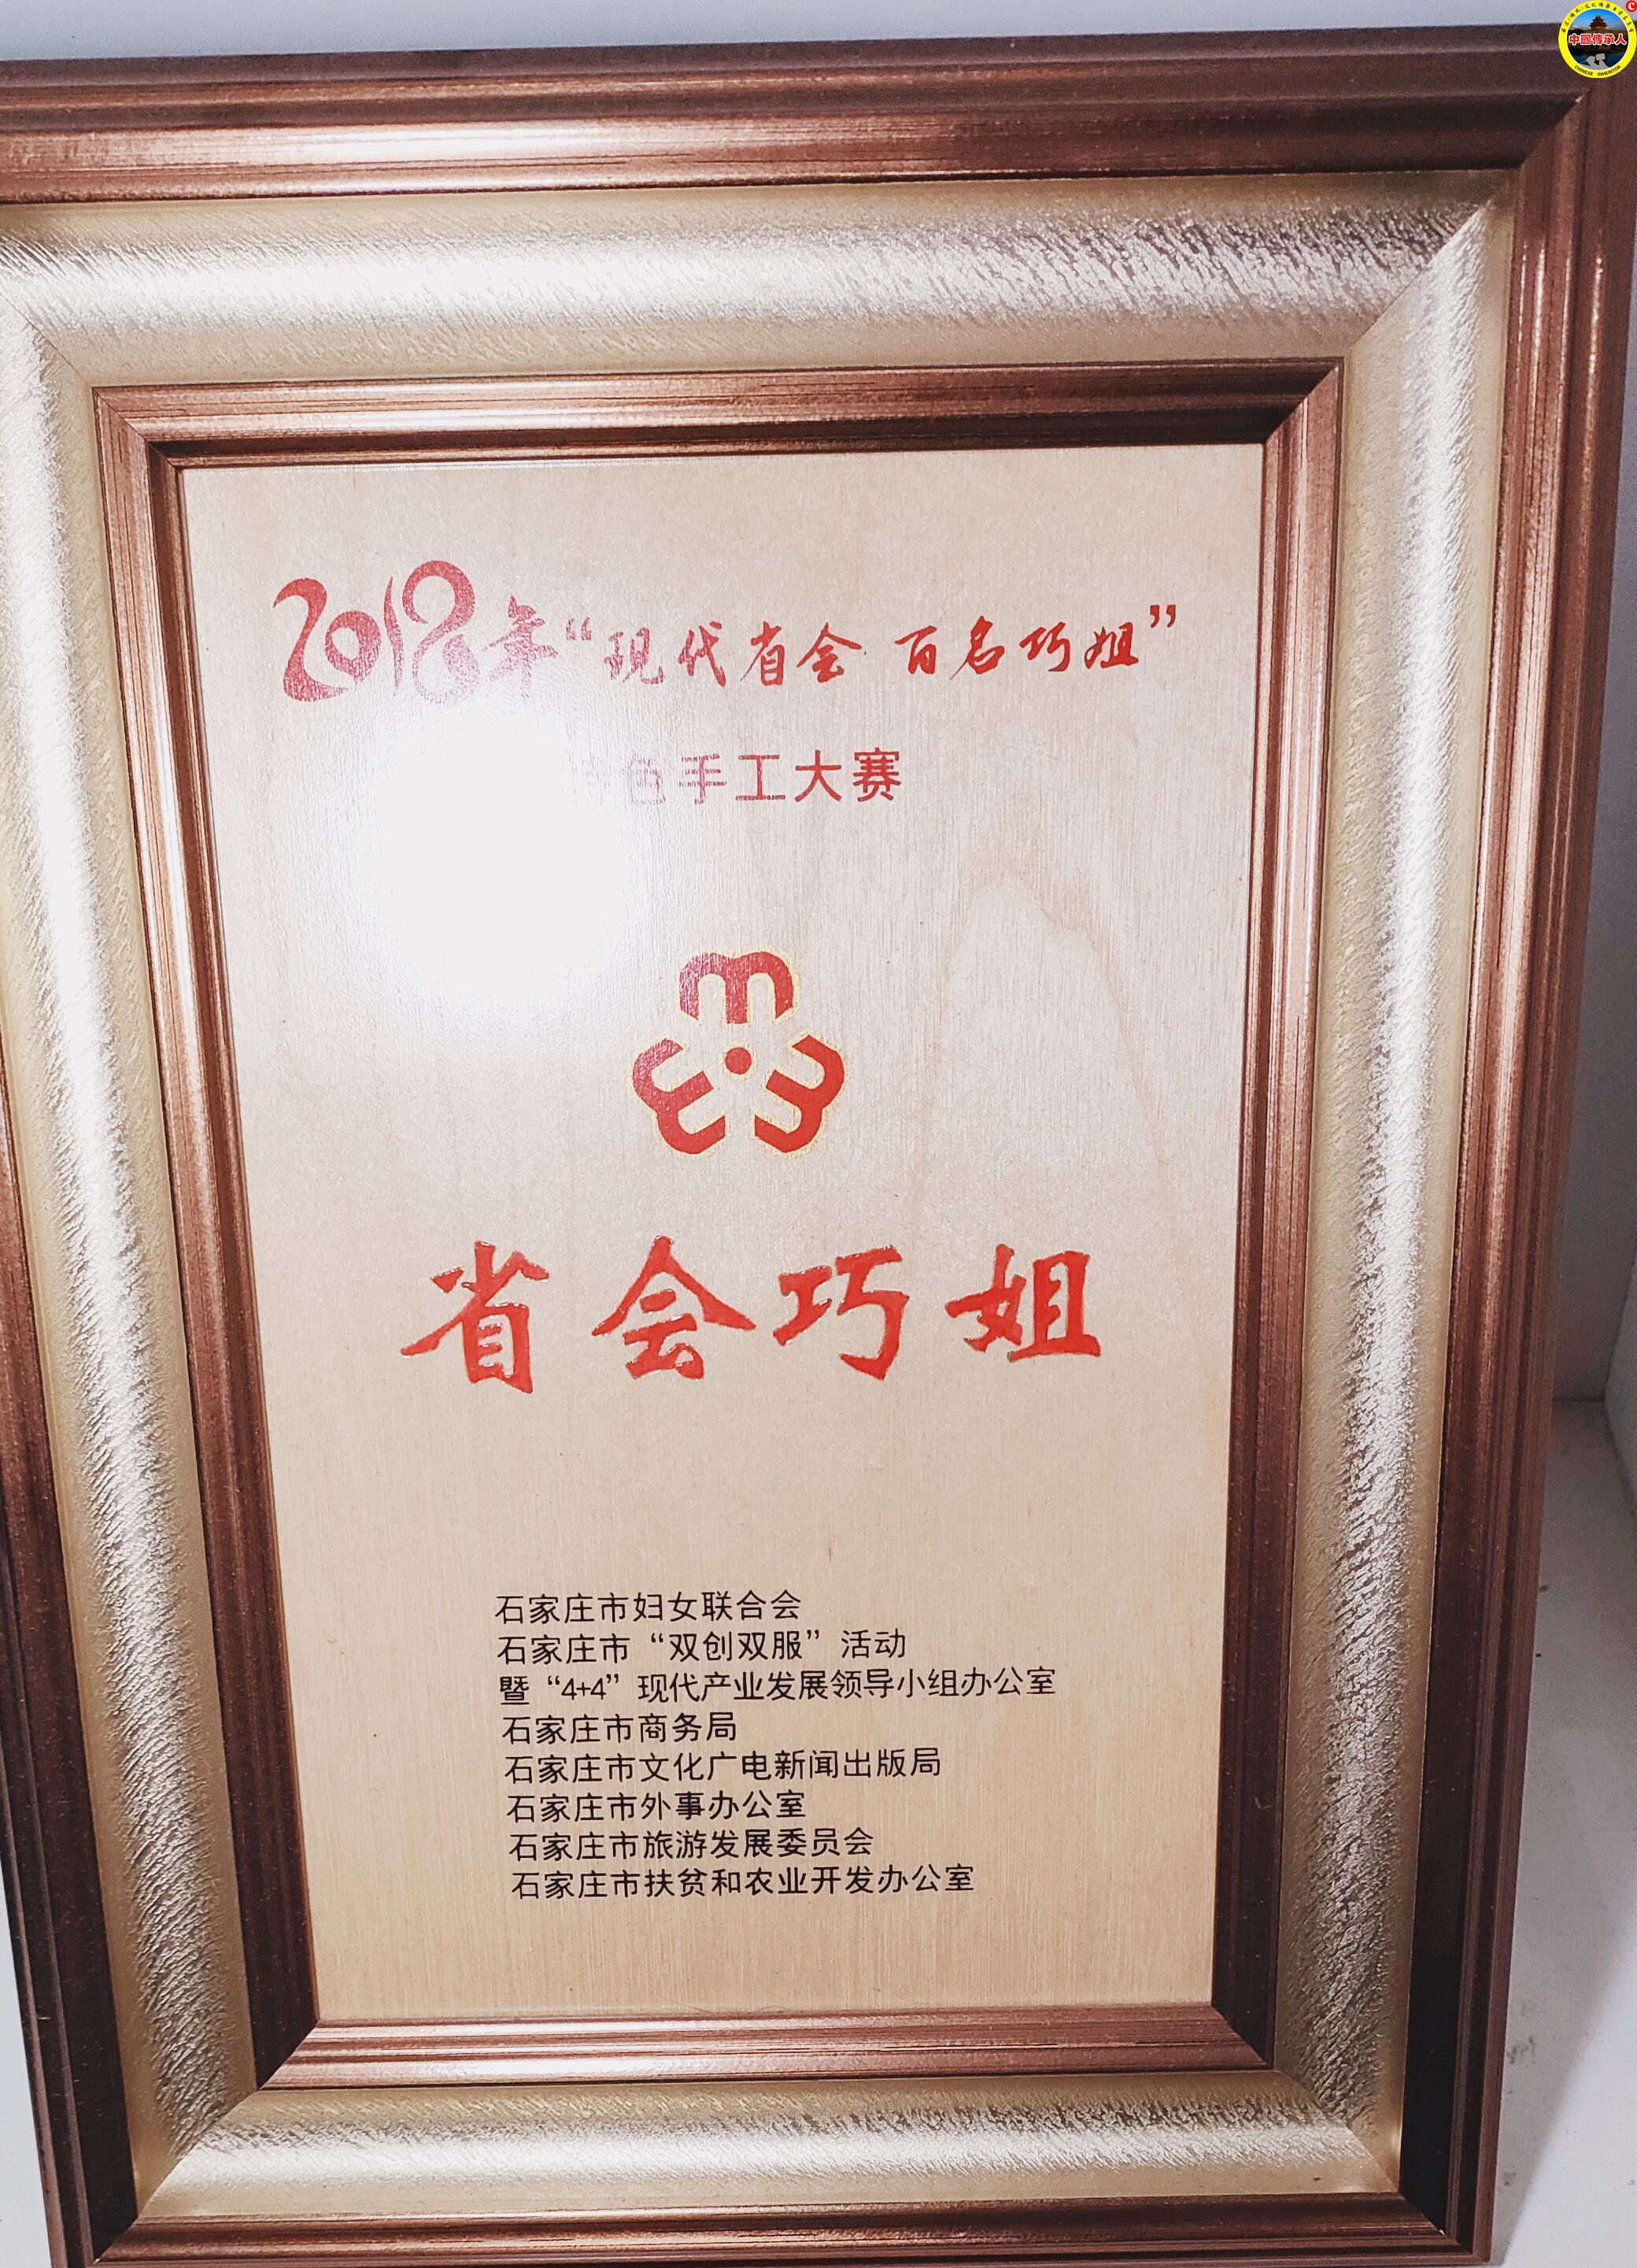 中國傳承人
CHINESE INHERITOR
2018年“现代省会 百名巧姐”
特色手工大赛
省会巧姐
石家庄市妇女联合会
石家庄市“双创双服”活动
暨“4+4”现代产业发展领导小组办公室
石家庄市商务局
石家庄市文化广电新闻出版局
石家庄市外事办公室
石家庄市旅游发展委员会
石家庄市扶贫和农业开发办公室